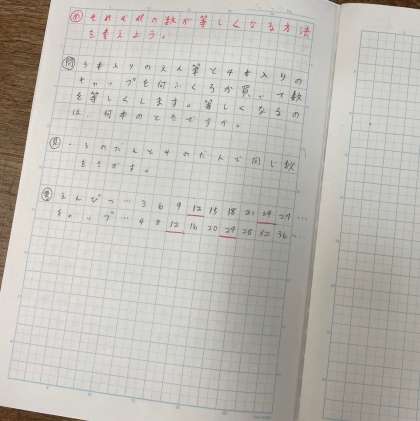 ㋱ それぞれの数が等しくなる方法
を考えよう。
問 3本入りのえん筆と4本入りの
キャップを何ふくろか買って数
を等しくします。等しくなるの
は、何本のときですか。
見・3のだんと4のだんで同じ数
をさがす。
考 えんぴつ… 3 6 9 12 15 18 21 24 27 …
キャップ… 4 8 12 16 20 24 28 32 36 …